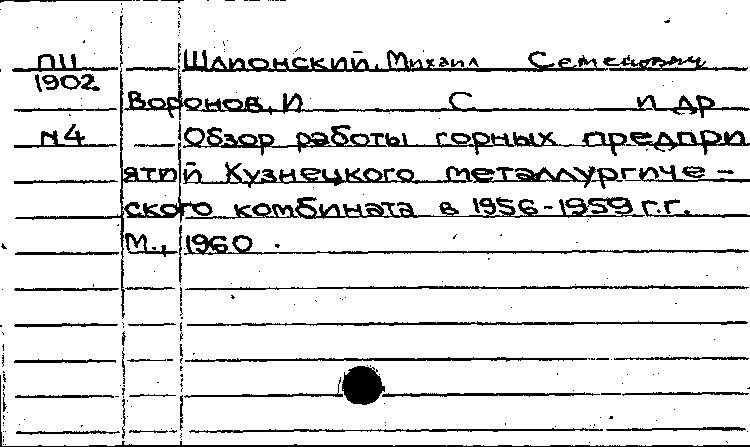 П11 Шапонский, Михаил Семенович
1902
Воронов, И С и др
N4 Обзор работы горных предпри
ятий Кузнецкого металлургиче -
ского комбината в 1956-1959 г.г.
М., 1960.